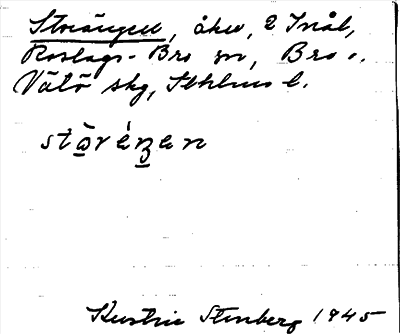 Storängen, åker, 2 Inål,
Roslags-Bro sn, Bro o.
Vätö skg, Sthlms l.
stòrä́ŋen
Kerstin Stenberg 1945